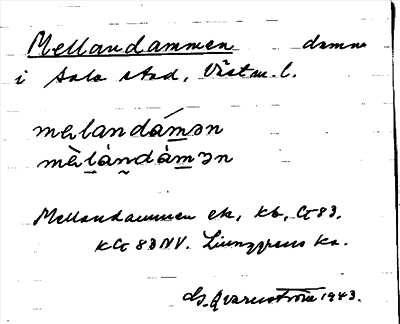 Mellandammen damm
i Sala stad, Västm. l.
mɛlandámən
mɛ̀làndàmən
Mellandammen ek, kb, G 83.
KG 83 NV. Ljunggrens ka.
G. Qvarnström 1943.